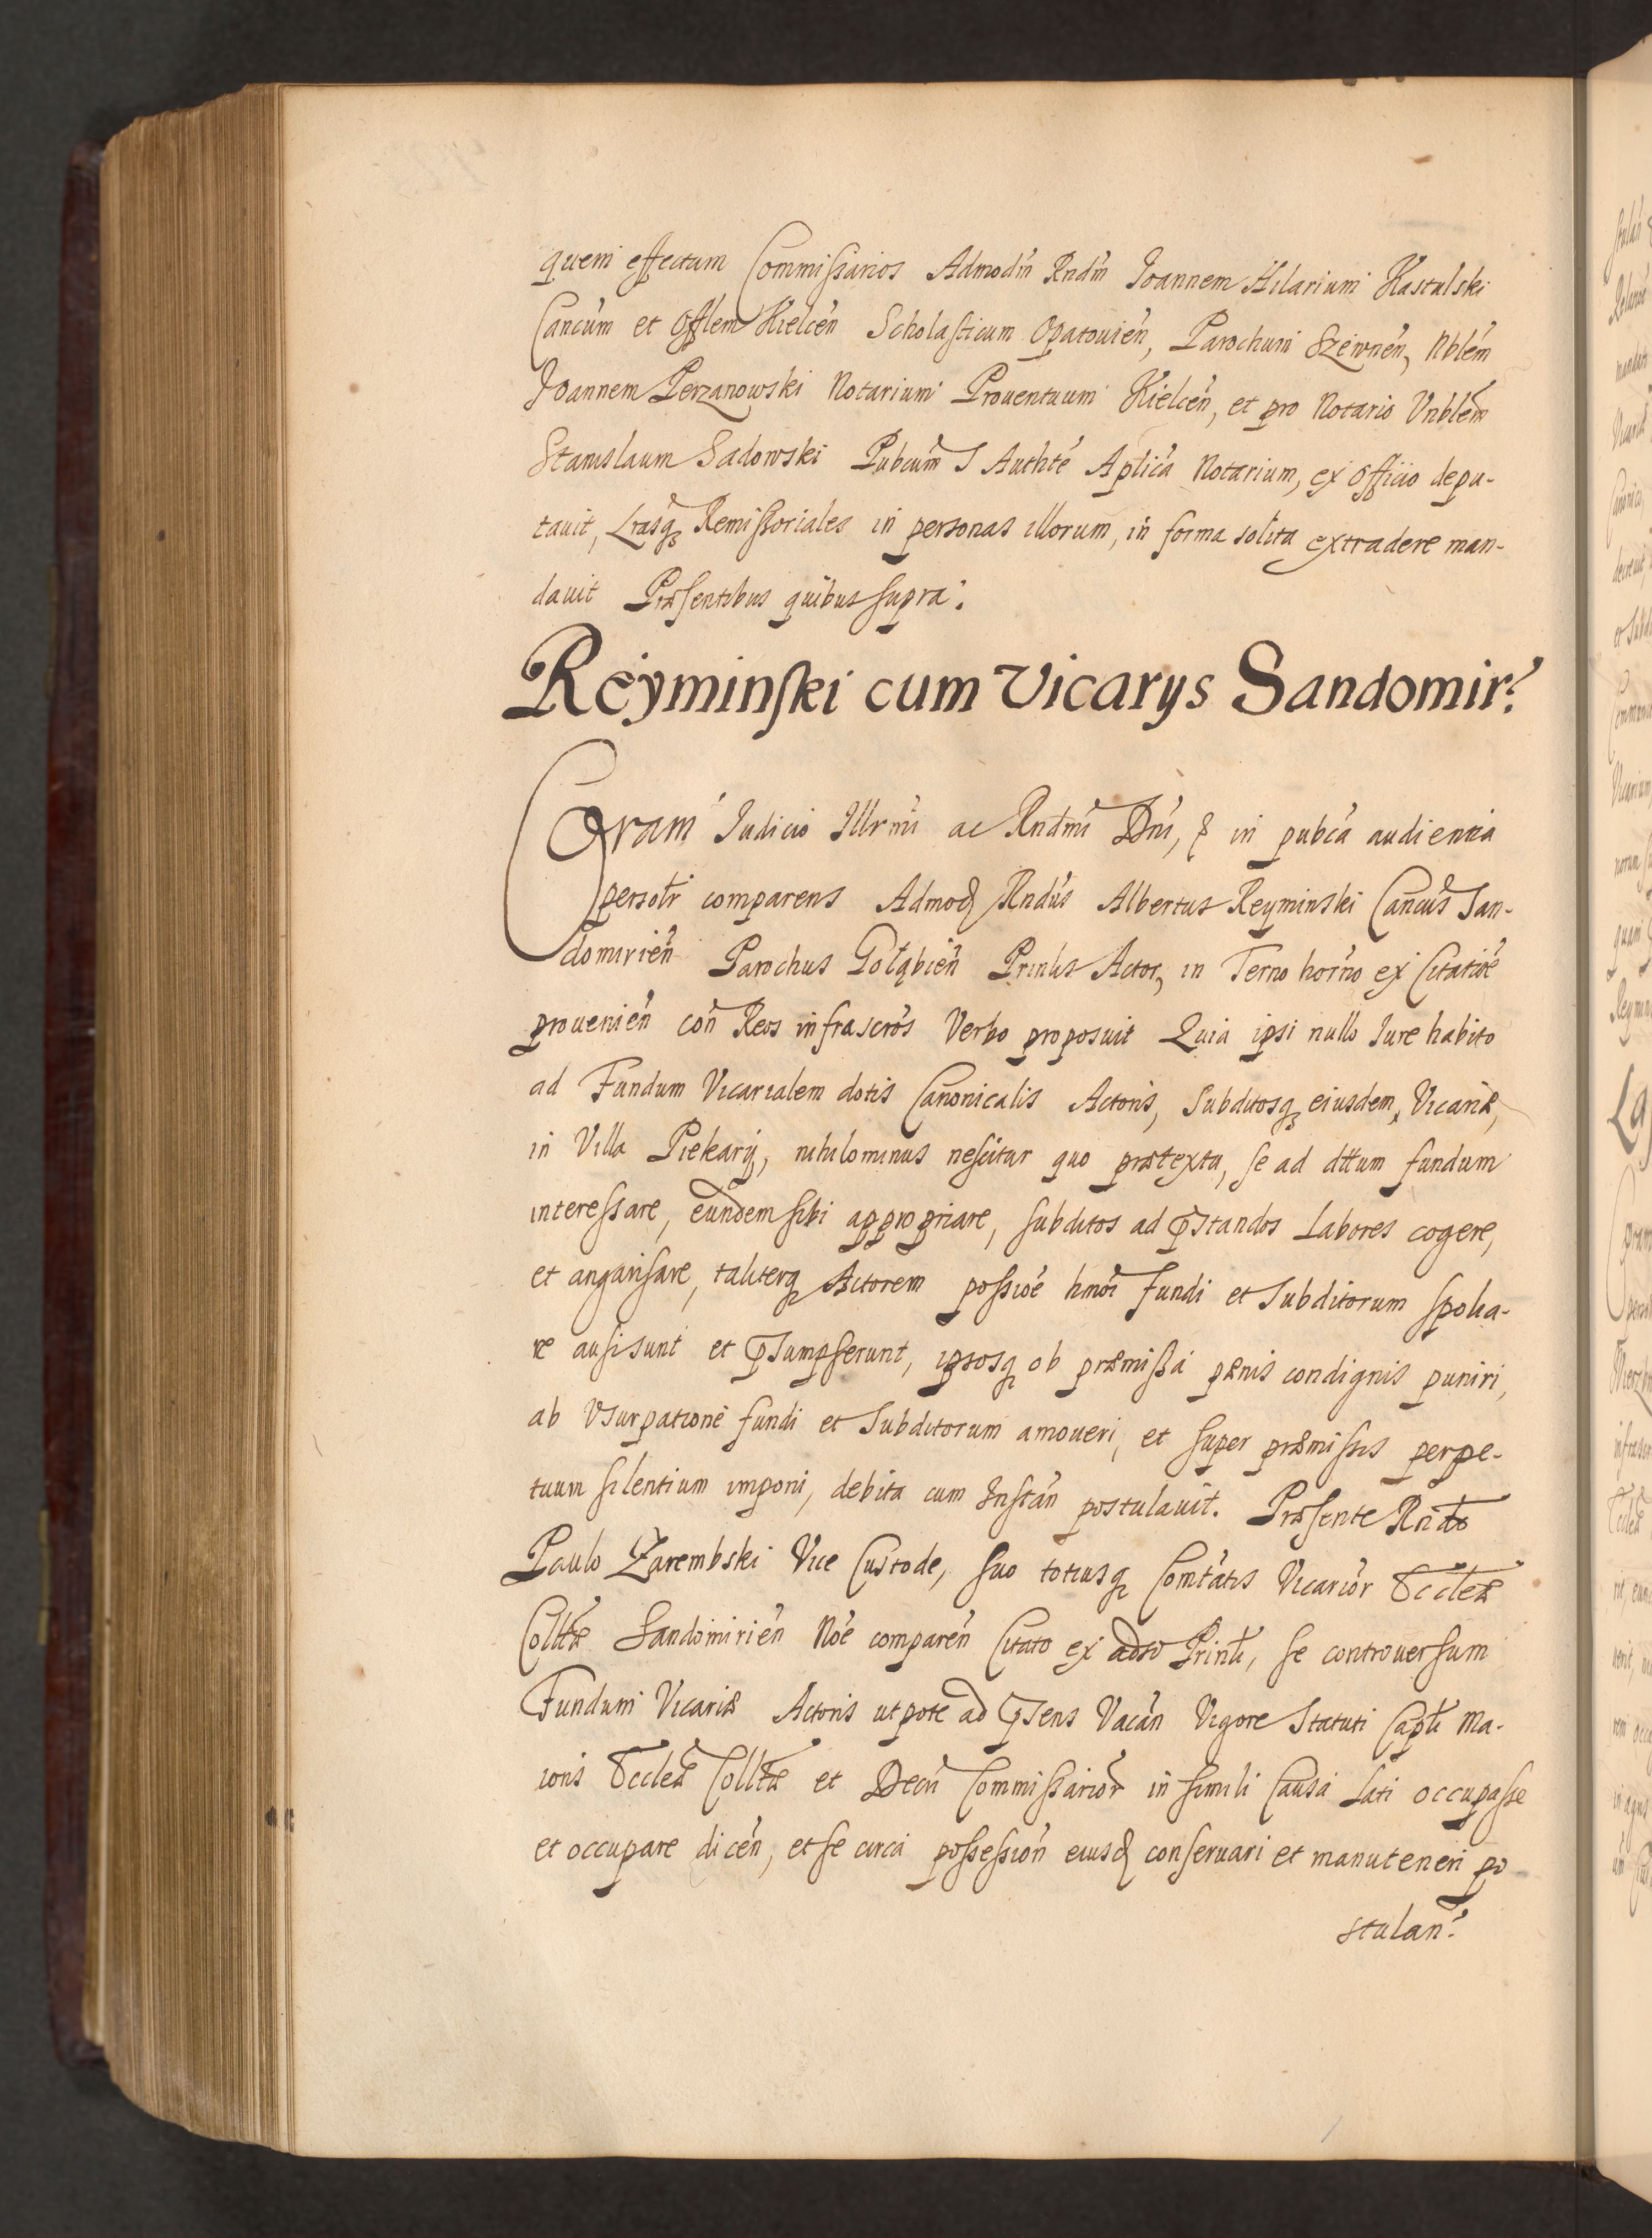 quem effectum Commissarios Admodm̃ Rndm̃ Ioannem Hilarium Kastulski
Cancum̃ et Offlem Kielceñ Scholasticum Opatouieñ, Parochum Szewneñ, Nblem̃
Joannem Perzanowski Notarium Prouentuum Kielceñ, et pro Notario Vnblem̃
Stanislaum Sadowski Pubcum̃ S Authte Aplica Notarium, ex Officio depu-
tauit, Lrasq3 Remissoriales in personas illorum, in forma solita extradere man-
dauit Præsentibus quibus supra.
Reyminski cum Vicarys Sandomir:
Coram Iudicio Illrmi ac Rndmi Dñi, & in pubca audientia
persolr̃ comparens Admod Rndus Albertus Reyminski Cancus San-
domirieñ Parochus Gołąbieñ Prinlis Actor, in Terno horno ex Citatioẽ
prouenieñ coñ Reos infrascros Verbo proposuit Quia ipsi nullo Iure habito
ad Fundum Vicarialem dotis Canonicalis Actoris, Subditosq3 eiusdem Vicariæ,
in Villa Piekary, nihilominus nescitur quo prætextu, se ad dttum fundum
interessare, eundem sibi appropriare, subditos ad p̃standos Labores cogere,
et angarisare, taliterq3 Actorem possioẽ hmoi fundi et Subditorum spolia-
re ausi sunt et p̃sumpserunt, ipsosq3 ob præmissa pænis condignis puniri,
ab Vsurpatione fundi et Subditorum amoueri, et super præmissis perpe-
tuum silentium imponi, debita cum Instañ postulauit. Præsente Rndo
Paulo Zarembski Vice Custode, suo totiusq3 Comtatis Vicarior Eccleæ
Colltæ Sandomirieñ Noẽ compareñ Citato ex adso Prinli, se controuersum
Fundum Vicariæ Actoris utpote ad p̃sens Vacañ Vigore Statuti Capli Ma-
ioris Eccleæ Colltæ et Decti Commissarior in simili Causa Lati occupasse
et occupare diceñ, et se circa possessioñ eiusd conseruari et manuteneri po
stulañ: